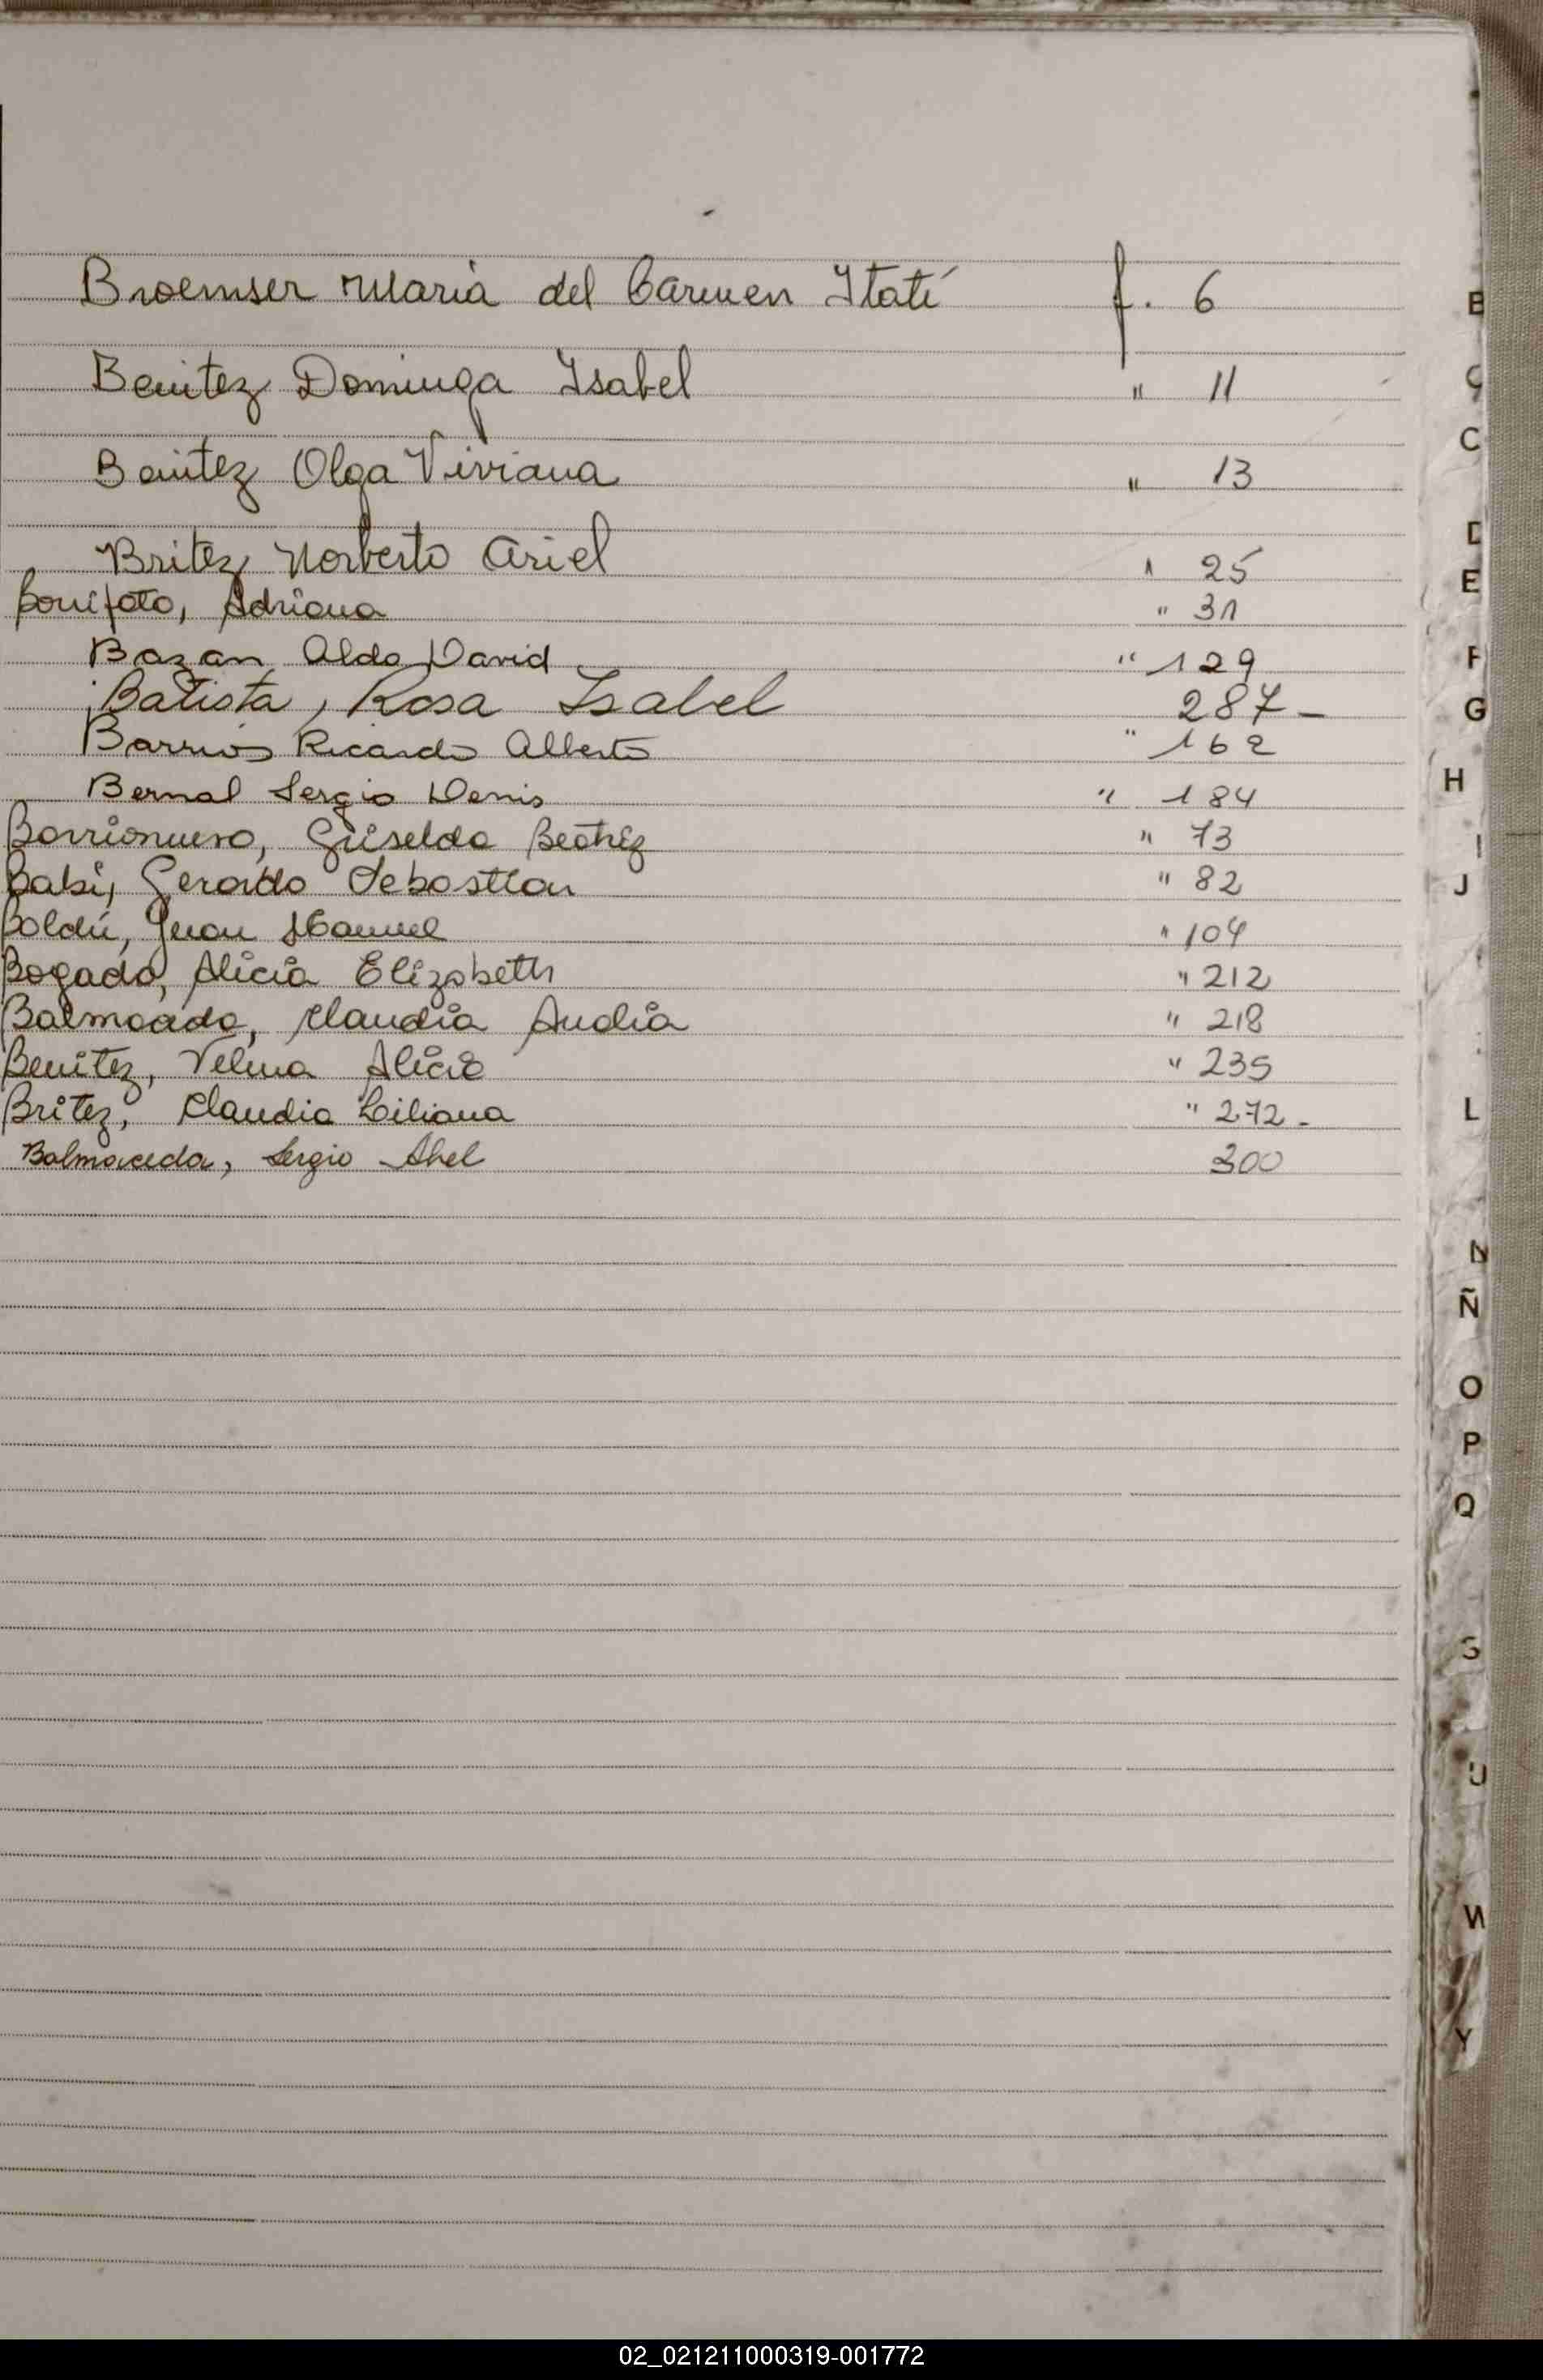 Broemser Maria del Carmen Itatí f. 6
Benitez Dominga Isabel " 11
Benitez Olga Viviana " 13
Britez Norberto Ariel " 25
Bonifato, Adriana " 31
Bazan Aldo David " 129
Batista, Rosa Isabel 287-
Barrios Ricardo Alberto " 162
Bernal Sergio Denis " 184
Barrionuevo, Griselda Beatriz " 73
Babi, Gerardo Sebastian " 82
Boldú, Juan Manuel " 104
Bogado, Alicia Elizabeth " 212
Balmaceda, Claudia Analia " 218
Benitez, Velma Alicia " 235
Britez, Claudia Liliana " 272-
Balmaceda, Sergio Abel 300
B
C
C
D
E
F
G
H
I
J
L
N
Ñ
O
P
Q
S
U
W
Y
02_021211000319-001772